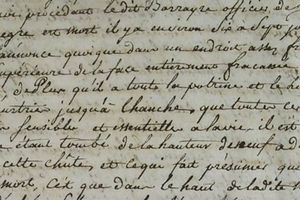 procédant ledit Barrayre offices, de
est mort il y a environ six a sept jo
annonce quoique dans un endroit
supérieure de la face entierement fracassée
de Plus qu'il a toute la poitrine et le
urtrie jusqu'a l'hanche, que toute ce
sensible et essentielle a la vie, il est
etant tombé de la hauteur de neuf a d
cette chûte, et ce qui fait présumer qu
mort, c'est que dans le haut de ladite